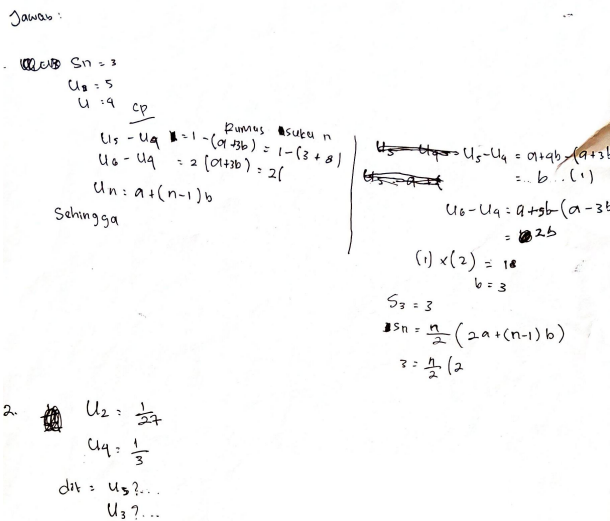 Jawab:
Sn = 3
U = 5
U = 9
cp
Rumus suku n
U5 - U9 = 1 - (a+3b) = 1 - (3 + 8)
U6 - U9 = 2 (a+3b) = 2(
Un = a + (n-1) b
Sehingga
U5 - U4 = a+4b - (a+3b
= .. b ... (1)
U6 - U4 = a + 5b - (a - 3b
= 2b
(1) x (2) = 18
b = 3
S3 = 3
Sn = n/2 (2a + (n-1) b)
3 = n/2 (2
2. U2 = 1/27
U4 = 1/3
dit = U5 ?...
U3 ?...